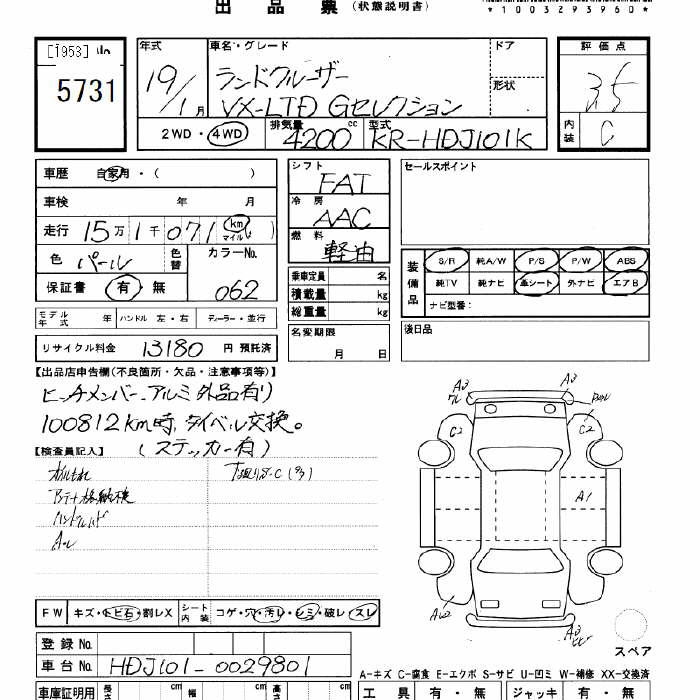 出品票(状態説明書)
*1003293960*
[1953]
5731
年式 19/1月
車名・グレード ランドクルーザー
VX-LTD Gセレクション
ドア
形状
評価点 3.5
内装 C
2WD・4WD 排気量 4200 cc 型式 KR-HDJ101K
車歴 自家用・( )
車検 年 月
走行 15万1千071 km マイル( )
色 パール 色替 カラーNo. 062
保証書 有・無
モデル年式 年 ハンドル 左・右 ディーラー・並行
リサイクル料金 13180 円 預託済
シフト FAT
冷房 AAC
燃料 軽油
乗車定員 名
積載量 kg
総重量 kg
名変期限
月 日
セールスポイント
装備品 S/R 純A/W P/S P/W ABS
純TV 純ナビ 革シート 外ナビ エアB
ナビ型番:
後日品
【出品店申告欄(不良箇所・欠品・注意事項等)】
ヒッチメンバー、アルミ外品有り
100812km時、タイベル交換。
(ステッカー有)
【検査員記入】
オイルもれ
ハンドルハゲ
FW キズ・トビ石・割レX シート内装 コゲ・穴・汚レ・シミ・破レ・スレ
登録No.
車台No. HDJ101-0029801
車庫証明用 長さ cm 幅 cm 高さ cm
A3
A3
C2
C2
A1
A3
スペア
A-キズ C-腐食 E-エクボ S-サビ U-凹ミ W-補修 XX-交換済
工具 有・無 ジャッキ 有・無